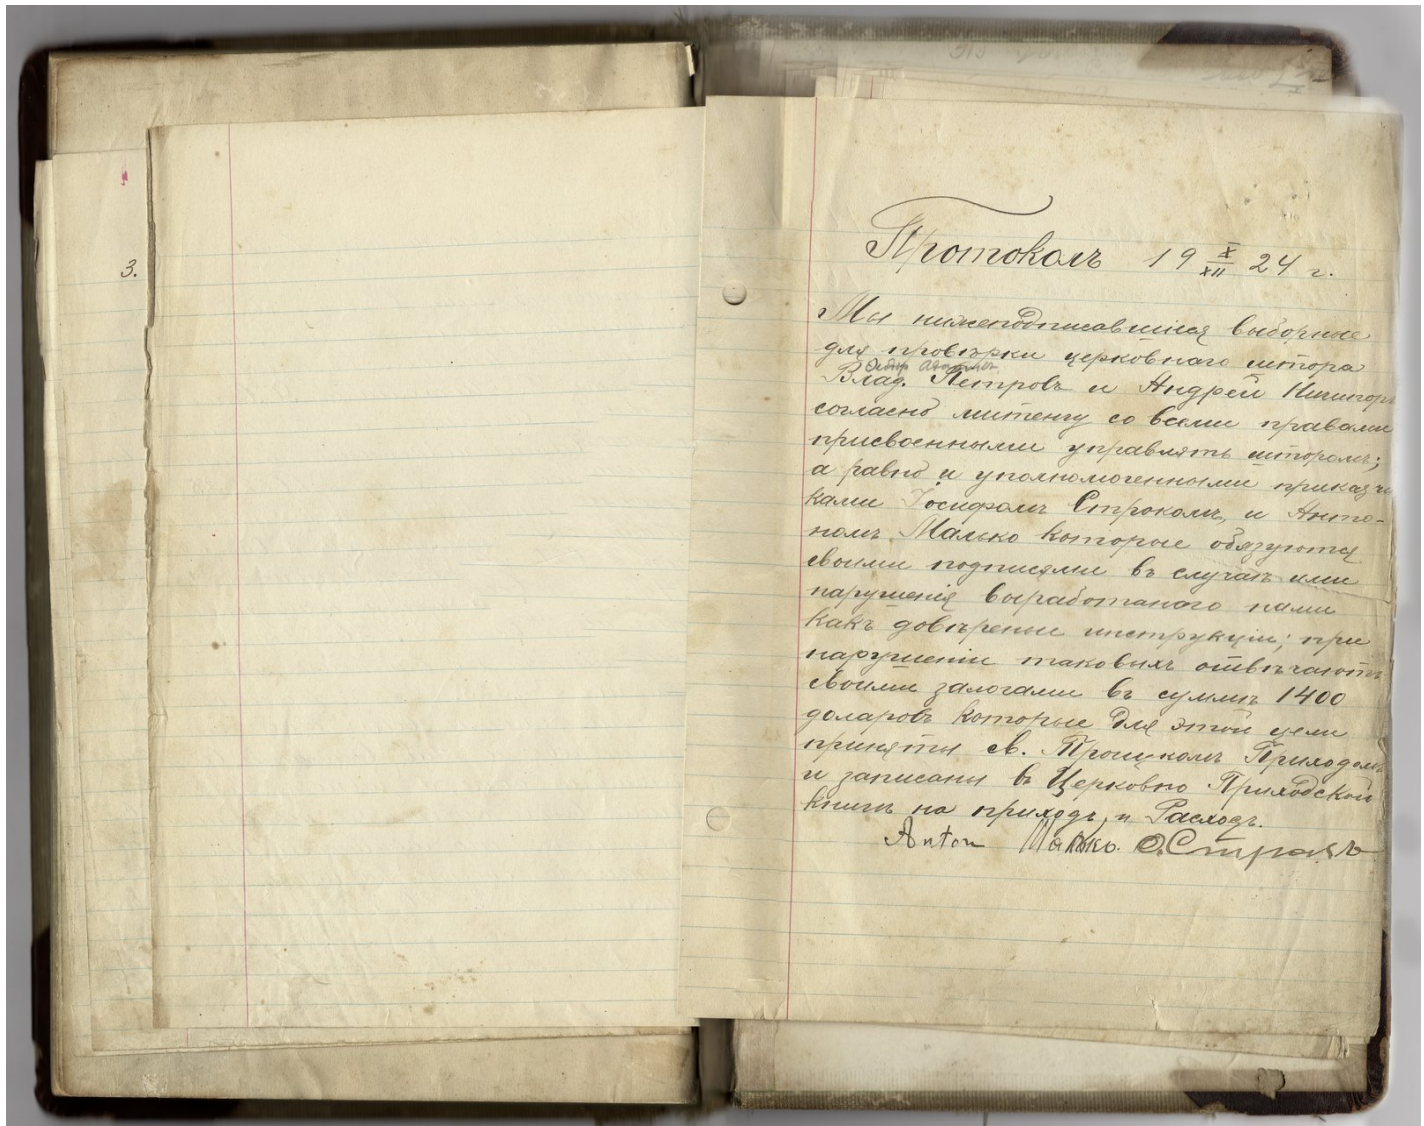 3.
Протоколъ 19 X/XII 24 г.
Мы нижеподписавшіися выборные
для провѣрки церковнаго штора
Влад. Петровъ и Андрей
согласно митенгу со всеми правами
присвоенными управлять шторомъ;
а равно и уполномоченными приказчи
ками Іосифомъ Строкомъ, и Анто-
номъ Малько которые обязуются
своими подписями въ случаѣ ими
нарушенія выработанаго нами
какъ довѣреные инструкціи; при
нарушеніи таковыхъ отвѣчаютъ
своими залогами въ суммѣ 1400
доларовъ которые для этой цели
приняты св. Троицкомъ Приходомъ
и записаны въ Церковно Приходской
книгѣ на приходъ и Расходъ.
Anton Малько. О. Строкъ